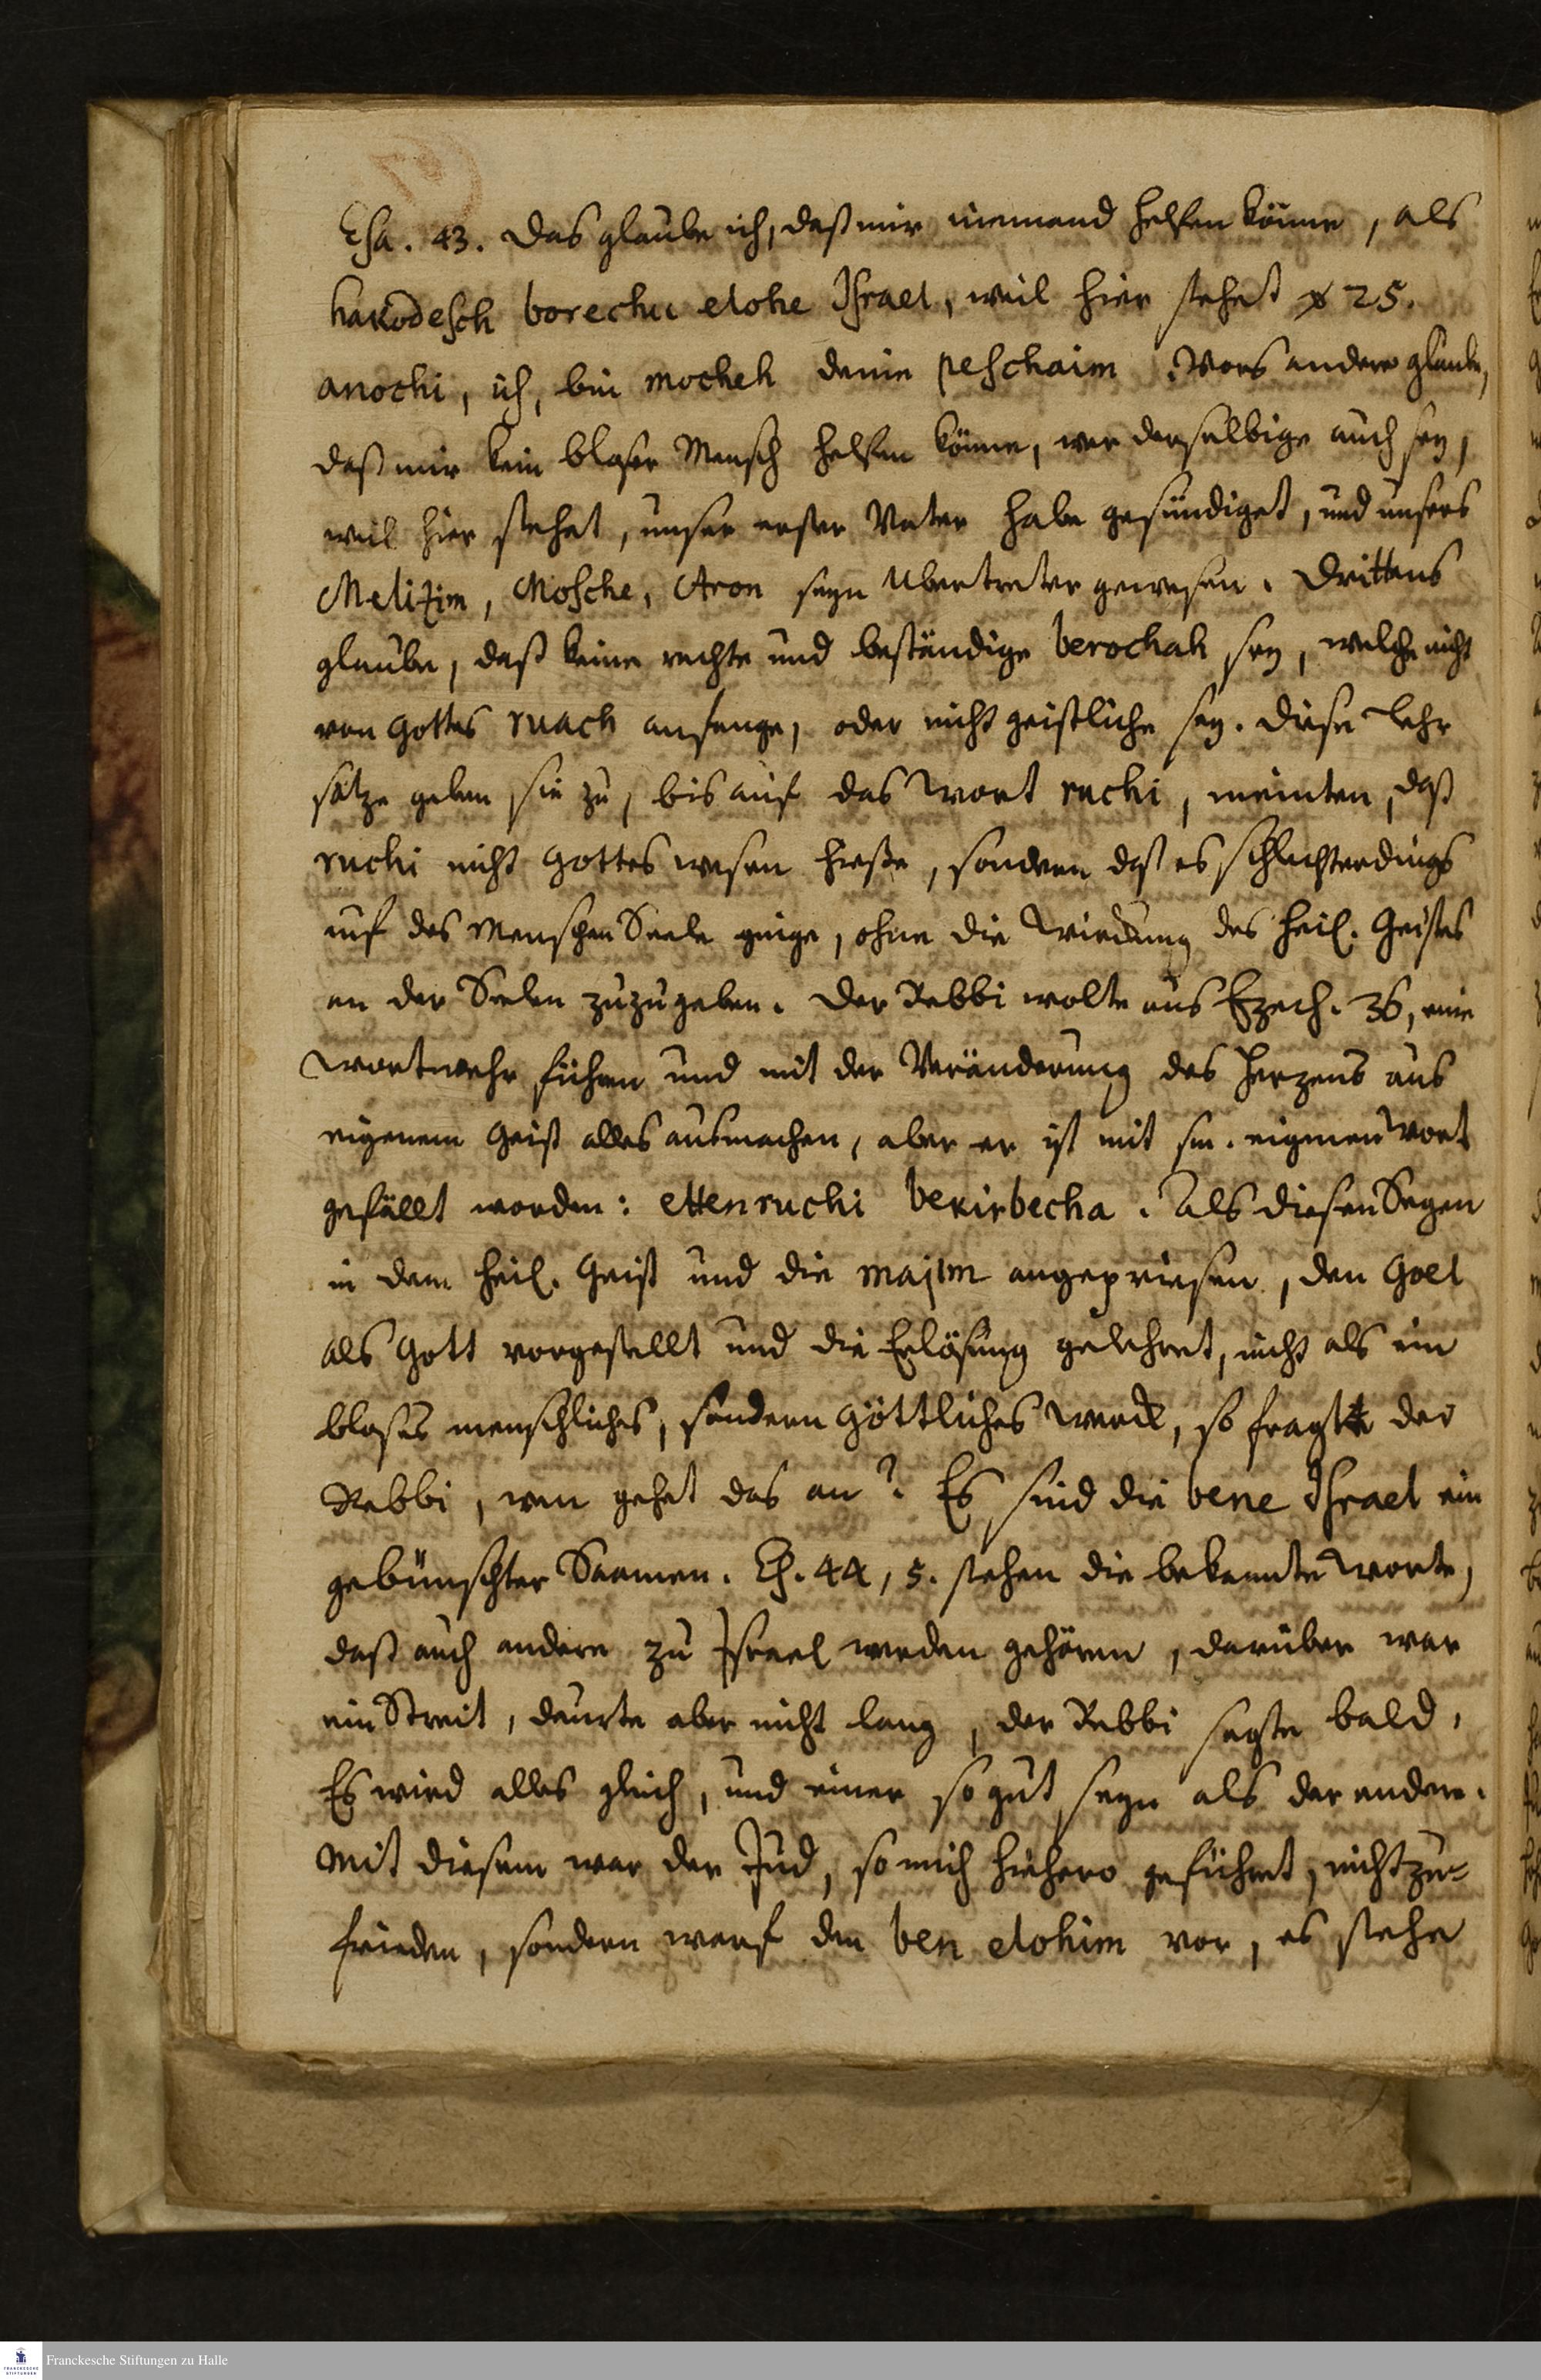 Esa. 43. das glaube ich, daß mir niemand helfen könne, als
hakodesch borechu elohe Israel, weil hier stehet ꝟ 25.
anochi, ich, bin mocheh deine peschaim. Vors andere glaube,
daß mir kein bloser Mensch helfen könne, wer derselbige auch sey,
weil hier stehet, unser erster Vater habe gesündiget, und unsere
Melizim, Mosche, Aron seyn Ubertreter gewesen. Drittens
glaube, daß keine rechte und beständige berochah sey, welche nicht
von Gottes ruach anfange, oder nicht geistliche sey. Diese Lehr
sätze geben sie zu, bis auf das Wort ruchi, meinten, daß
ruchi nicht Gottes wesen hieße, sondern daß es schlechterdings
auf des Menschen Seele ginge, ohne die Wirckung des heil. Geistes
an der Seelen zuzugeben. Der Rebbi wolte aus Ezech. 36, eine
Wortwehr führen und mit der Veränderung des Herzens aus
eigenem Geist alles ausmachen, aber er ist mit sm. eigenen Wort
gefällt worden: etten ruchi bekirbecha. Als diesen Segen
in dem heil. Geist und die majim angepriesen, den Goel
als Gott vorgestellt und die Erlösung gelehret, nicht als ein
bloses menschliches, sondern göttliches Werck, so fragte der
Rebbi, wen gehet das an? Es sind die bene Israel ein
gebünschter Saamen. Es. 44, 5. stehen die bekannte Worte,
daß auch andere zu Israel werden gehören, darüber war
ein Streit, daurte aber nicht lang, der Rebbi sagte bald,
Es wird alles gleich, und einer so gut seyn als der andere.
Mit diesem war der Jud, so mich hiehero geführet, nicht zu-
frieden, sondern warf den ben elohim vor, es stehe
Franckesche Stiftungen zu Halle